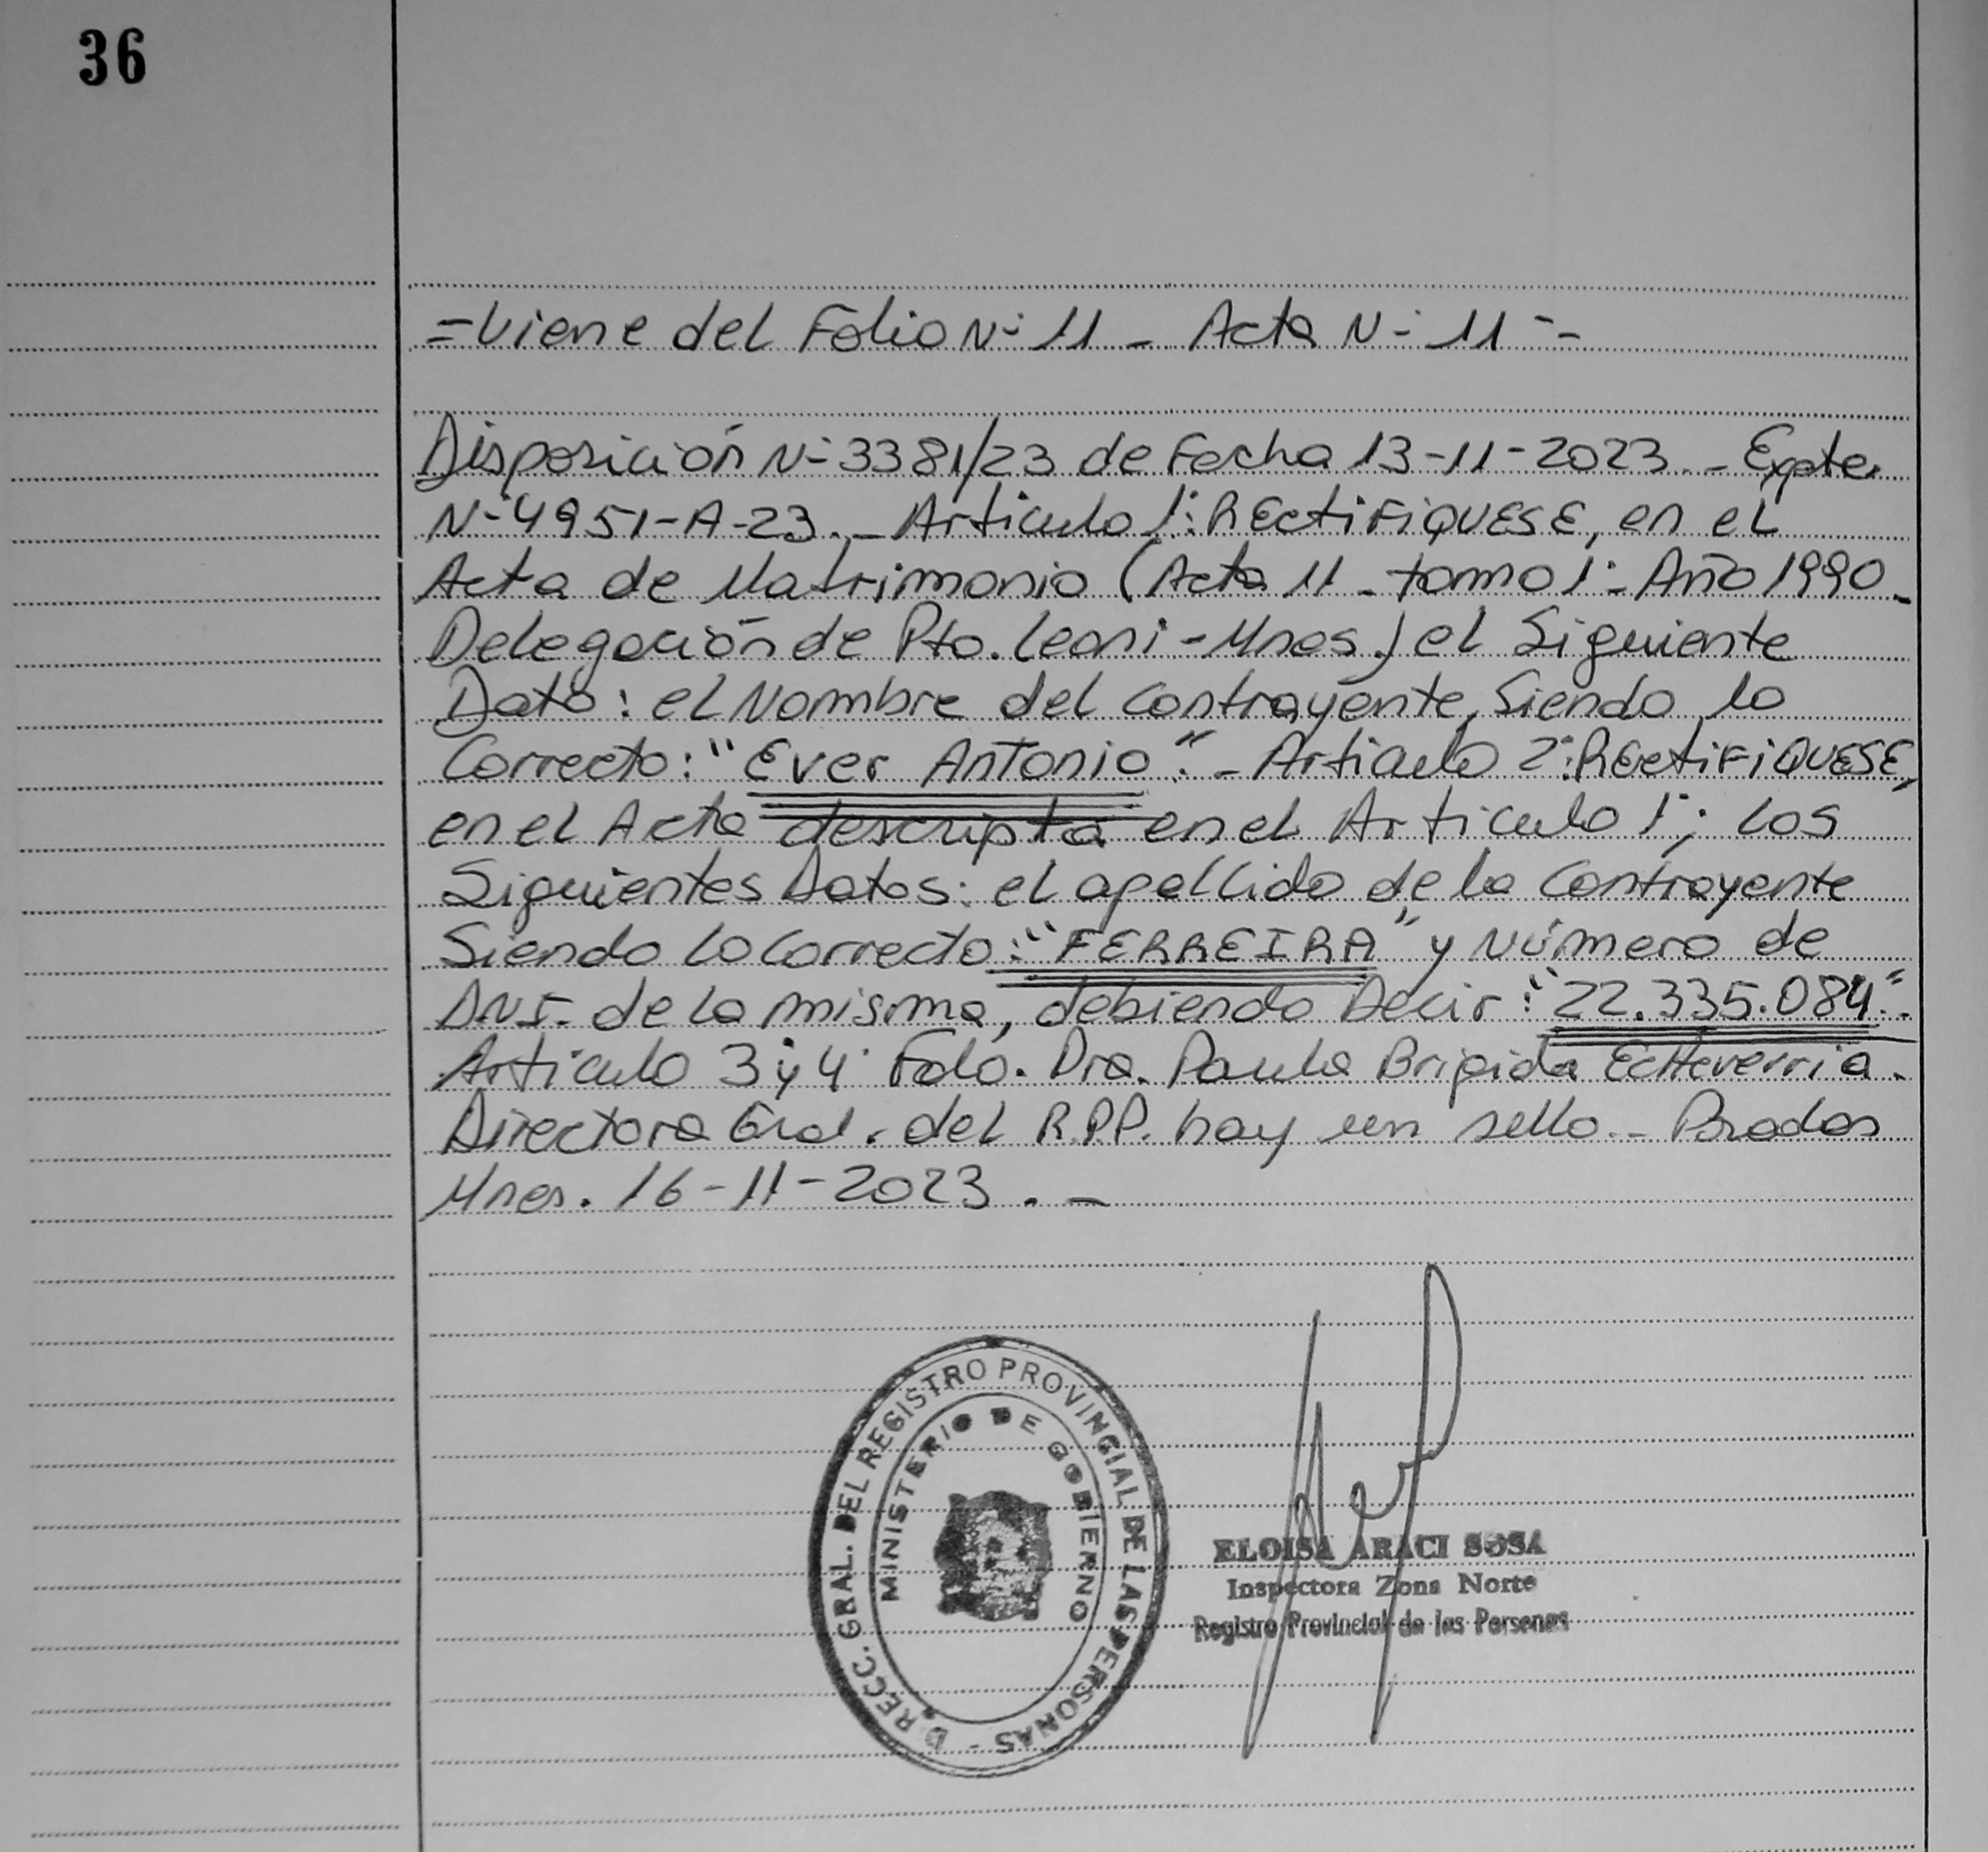 36
=Viene del Folio Nº 11 - Acta Nº 11 =-
Disposición Nº 3381/23 de Fecha 13-11-2023.- Expte.
Nº 4951-A-23.- Articulo 1º: RECtiFiQUESE, en el
Acta de Matrimonio (Acta 11 - tomo 1º - Año 1990 -
Delegación de Pto. Leoni - Mnes.) el Siguiente
Dato: el Nombre del Contrayente, Siendo lo
Correcto: "Ever Antonio".- Articulo 2º: RECtiFiQUESE,
en el Acta descripta en el Articulo 1º; los
Siguientes Datos: el apellido de la Contrayente
Siendo lo Correcto: "FERREIRA" y Número de
DNI. de la misma, debiendo Decir: "22.335.084".
Articulo 3º y 4º Fdo. Dra. Paula Brigida Echeverria.
Directora Gral. del R.P.P. hay un sello.- Posadas
Mnes. 16-11-2023.-
DIRECC. GRAL. DEL REGISTRO PROVINCIAL DE LAS PERSONAS -
MINISTERIO DE GOBIERNO
ELOISA ARACI SOSA
Inspectora Zona Norte
Registro Provincial de las Personas